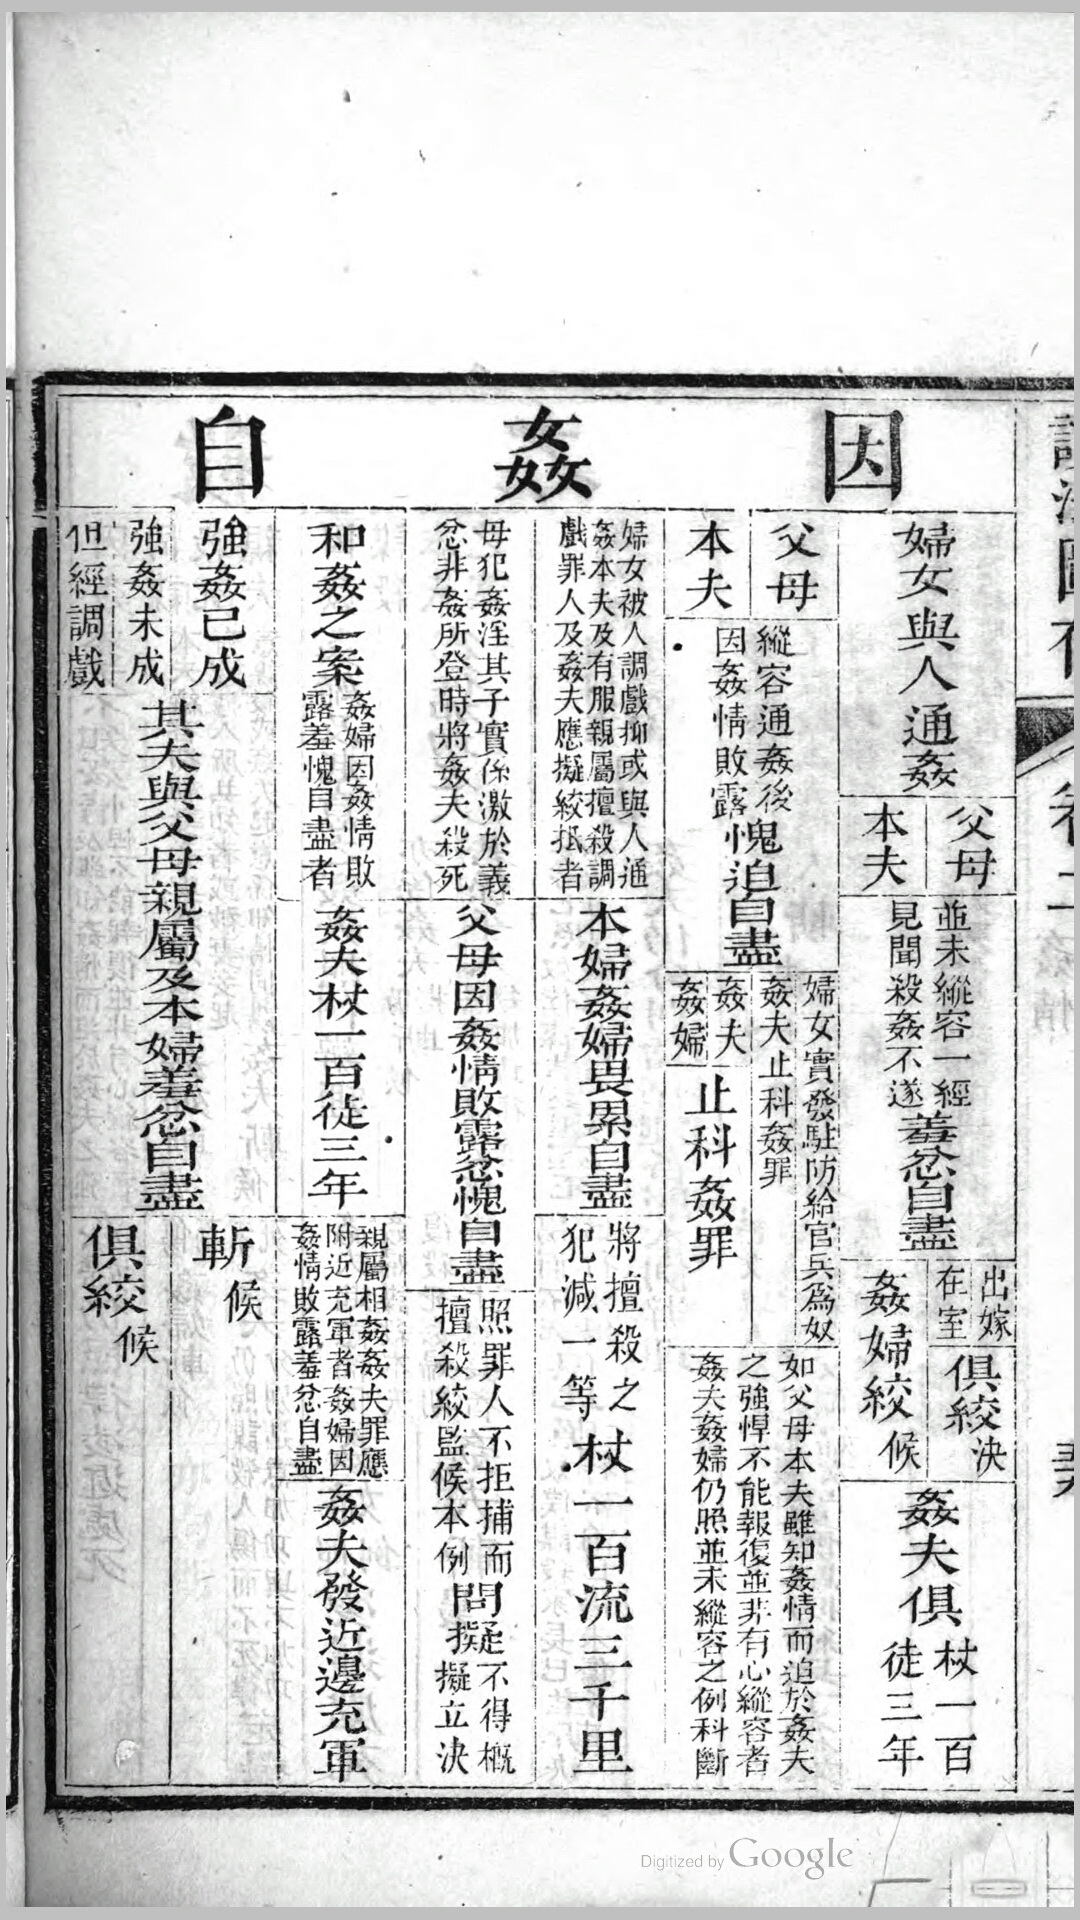 因姦自
婦女與人通姦
父母
本夫
並未縱容一經
見聞殺姦不遂
羞忿自盡
出嫁
在室
俱絞決
姦婦絞候
姦夫俱
杖一百
徒三年
父母
本夫
縱容通姦後
因姦情敗露
愧迫自盡
婦女實發駐防給官兵為奴
姦夫止科姦罪
姦夫
姦婦
止科姦罪
如父母本夫雖知姦情而迫於姦夫
之強悍不能報復並非有心縱容者
姦夫姦婦仍照並未縱容之例科斷
婦女被人調戲抑或與人通
姦本夫及有服親屬擅殺調
戲罪人及姦夫應擬絞抵者
本婦姦婦畏累自盡
將擅殺之
犯減一等
杖一百流三千里
母犯姦淫其子實係激於義
忿非姦所登時將姦夫殺死
父母因姦情敗露忿愧自盡
照罪人不拒捕而
擅殺絞監候本例
問擬
不得概
擬立決
和姦之案
姦婦因姦情敗
露羞愧自盡者
姦夫杖一百徒三年
親屬相姦姦夫罪應
附近充軍者姦婦因
姦情敗露羞忿自盡
姦夫發近邊充軍
強姦已成
強姦未成
但經調戲
其夫與父母親屬及本婦羞忿自盡
斬候
俱絞候
Digitized by Google